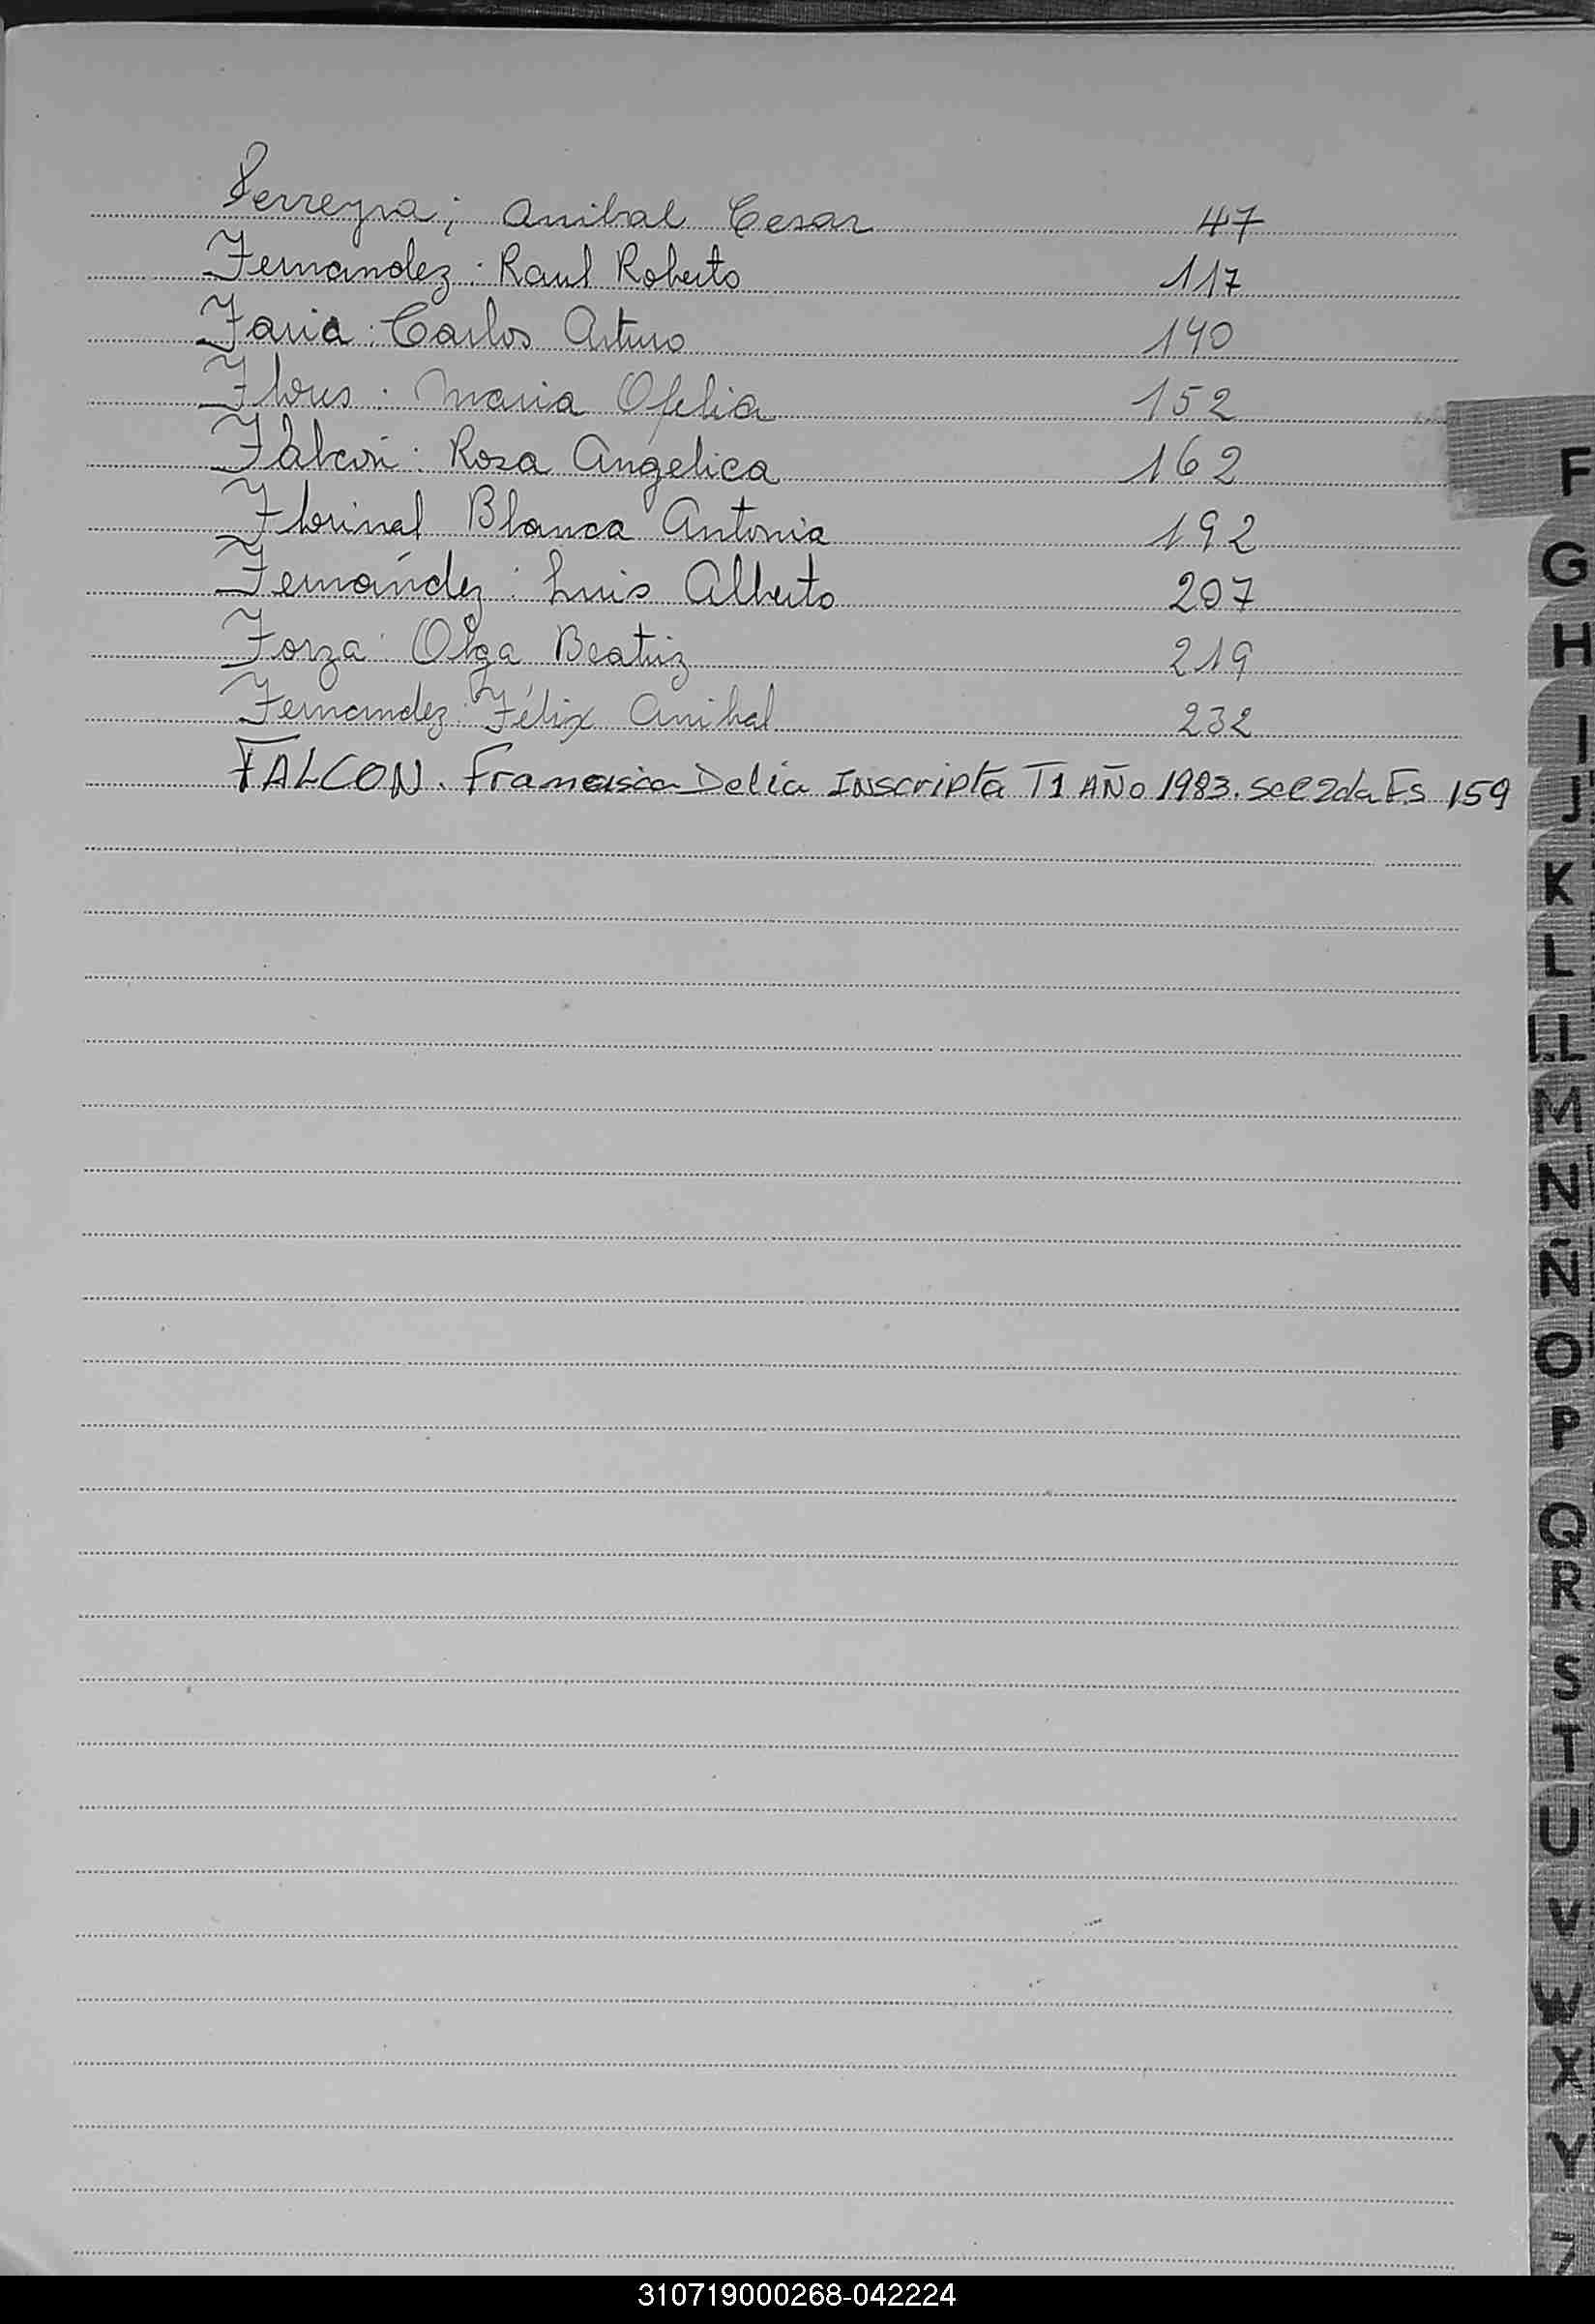 Ferreyra; Anibal Cesar 47
Fernandez: Raul Roberto 117
Faria: Carlos Arturo 140
Flores: Maria Ofelia 152
Falcón: Rosa Angelica 162
Florinal Blanca Antonia 192
Fernández: Luis Alberto 207
Forza: Olga Beatriz 219
Fernandez: Félix Anibal 232
FALCON. Francisca Delia Inscripta T1 AÑO 1983. Sec 2da Es 159
F
G
H
I
J
K
L
LL
M
N
Ñ
O
P
Q
R
S
T
U
V
W
X
Y
Z
310719000268-042224